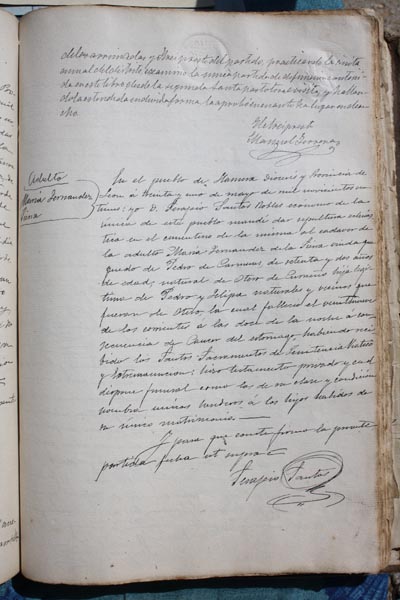 de los arminolas y Arcipreste del partido, practicando la visita
anual del distrito examinó la unica partida de defuncion conteni-
da en este libro desde la segunda Santa pastoral visita, y hallan-
dola estendida en devida forma la aprobó en cuanto ha lugar en dere-
cho.
El Arcipreste
Adulto
Maria Fernandez
Sana
En el pueblo de Diocesis y Provincia de
Leon á treinta y uno de mayo de mil novecientos
uno: yo D. Serapio Santos Robles economo de la
unica de este pueblo mandé dar sepultura eclesiás-
tica en el cementerio de la misma al cadaver de
la adulta Maria Fernandez de la Sana viuda que
quedó de Pedro de de setenta y dos años
de edad, natural de Otero de Curueño hija legi-
tima de Pedro y Felipa naturales y vecinos que
fueron de Otero, la cual falleció el veintinueve
de los corrientes á las doce de la noche á con-
secuencia de Cancer del estomago habiendo reci-
bido los Santos Sacramentos de Penitencia Viático
y Extremauncion: hizo testamento privado y en él
dispone funeral como los de su clase y condición
nombra unicos herederos á los hijos habidos de
su único matrimonio.
Y para que conste firmo la presente
partida fecha ut supra
Serapio Santos